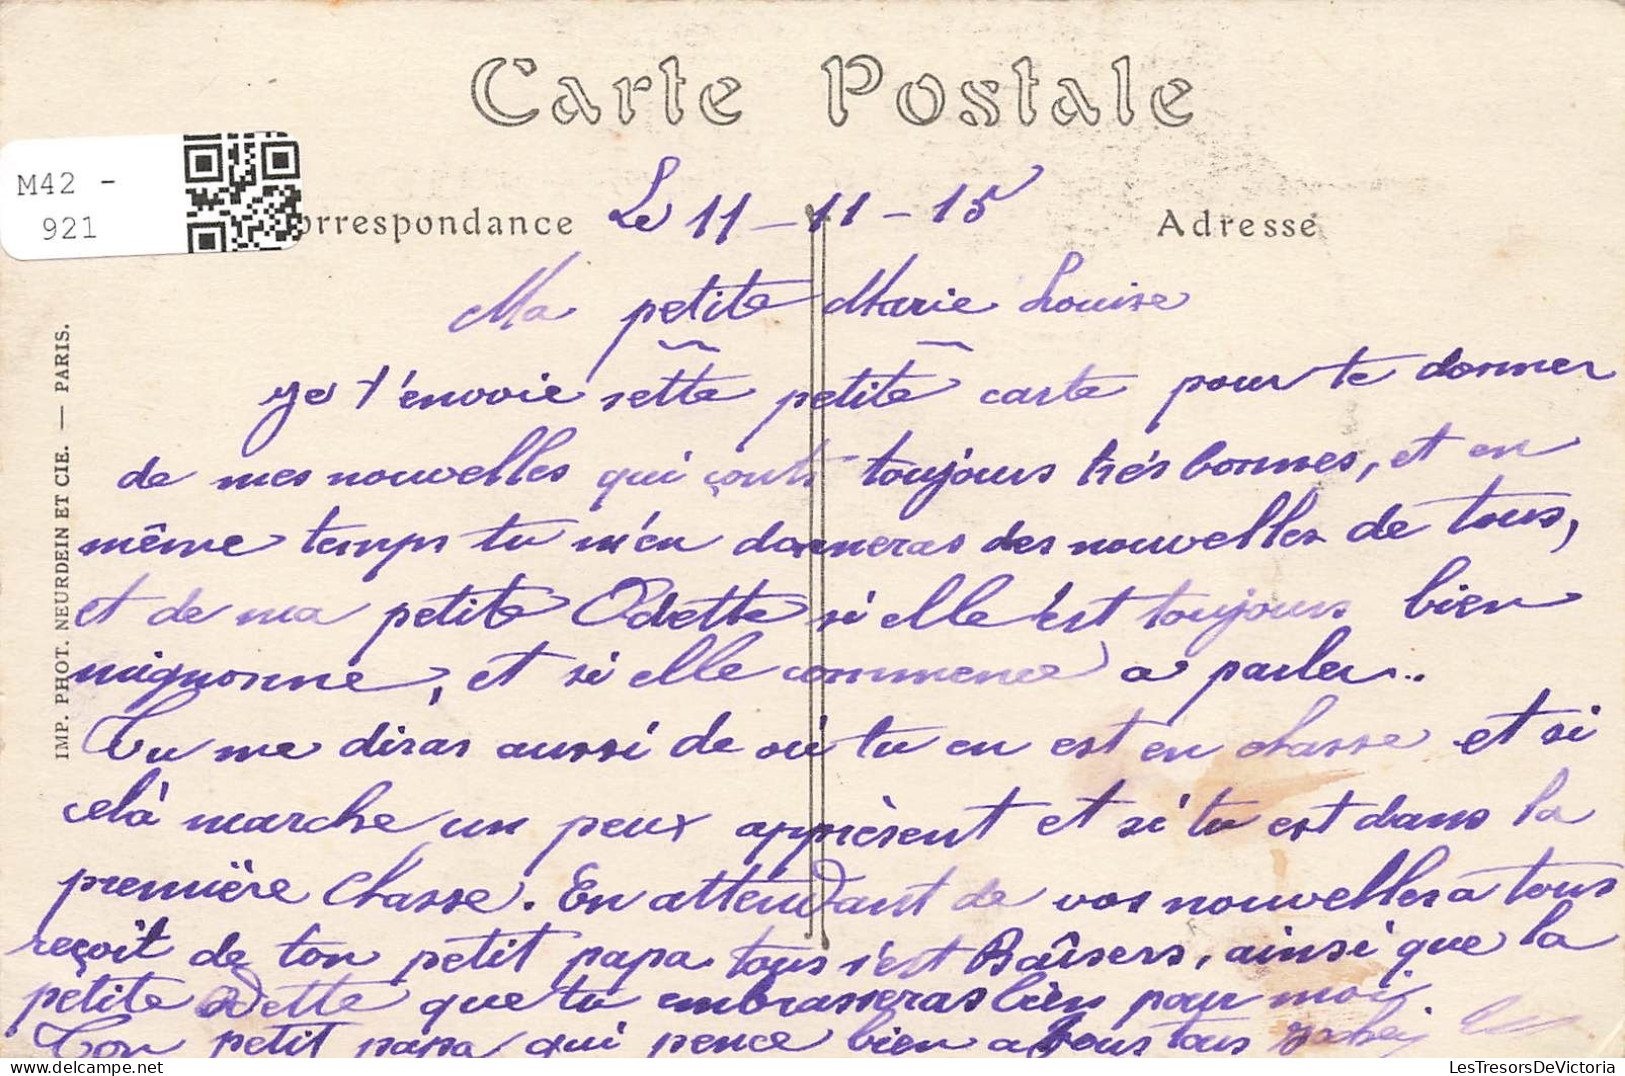 Carte Postale
M42 -
921
orrespondance
Le 11-11-15
Adresse
Ma petite Marie Louise
je t'envoie sette petite carte pour te donner
de mes nouvelles qui çonts toujours très bonnes, et en
même temps tu m'en donneras des nouvelles de tous,
et de ma petite Odette si elle est toujours bien
mignonne, et si elle commence a parler..
Tu me diras aussi de où tu en est en chasse et si
celà marche un peux apprèsent et si tu est dans la
première chasse. En attendant de vos nouvelles a tous
reçoit de ton petit papa tous s'est Baîsers, ainsi que la
petite Odette que tu embrasseras bien pour moi.
Ton petit papa qui pence bien a vous tous
IMP. PHOT. NEURDEIN ET CIE. — PARIS.
LesTresorsDeVictoria